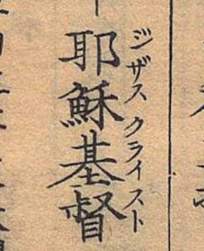 耶穌基督
ジザスクライスト